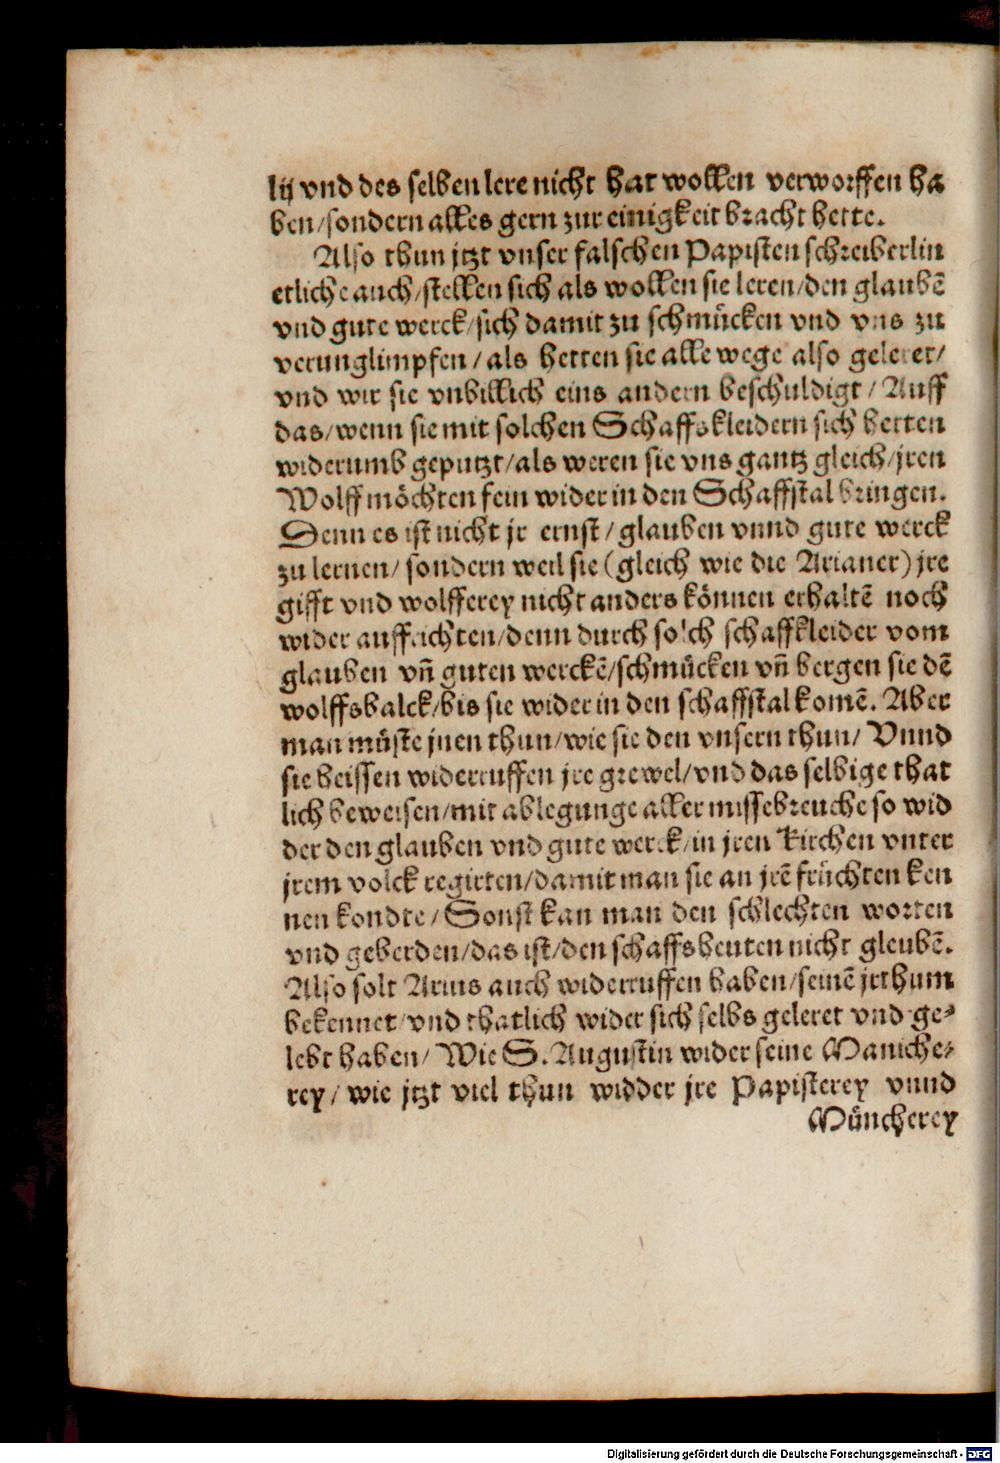 lij vnd des selben lere nicht hat wollen verworffen ha
ben/sondern alles gern zur einigkeit bracht hette.
Also thun jtzt vnser falschen Papisten schreiberlin
etliche auch/stellen sich als wollen sie leren/den glaubē
vnd gute werck/sich damit zu schmücken vnd vns zu
verunglimpfen/als hetten sie alle wege also geleret/
vnd wir sie vnbillich eins andern beschuldigt/Auff
das/wenn sie mit solchen Schaffskleidern sich hetten
widerumb geputzt/als weren sie vns gantz gleich/jren
Wolff möchten fein wider in den Schaffstal bringen.
Denn es ist nicht jr ernst/glauben vnnd gute werck
zu lernen/sondern weil sie (gleich wie die Arianer) jre
gifft vnd wolfferey nicht anders können erhaltē noch
wider auffrichten/denn durch solch schaffkleider vom
glauben vñ guten werckē/schmücken vñ bergen sie dē
wolffsbalck/bis sie wider in den schaffstal komē. Aber
man müste jnen thun/wie sie den vnsern thun/Vnnd
sie heissen widerruffen jre grewel/vnd das selbige that
lich beweisen/mit ablegunge aller missebreuche so wid
der den glauben vnd gute werck/in jren Kirchen vnter
jrem volck regirten/damit man sie an jrē früchten ken
nen kondte/Sonst kan man den schlechten worten
vnd geberden/das ist/den schaffsheuten nicht gleubē.
Also solt Arius auch widerruffen haben/seinē jrthum
bekennet/vnd thatlich wider sich selbs geleret vnd ge⸗
lebt haben/Wie S. Augustin wider seine Maniche⸗
rey/wie jtzt viel thun widder jre Papisterey vnnd
Müncherey
Digitalisierung gefördert durch die Deutsche Forschungsgemeinschaft - DFG